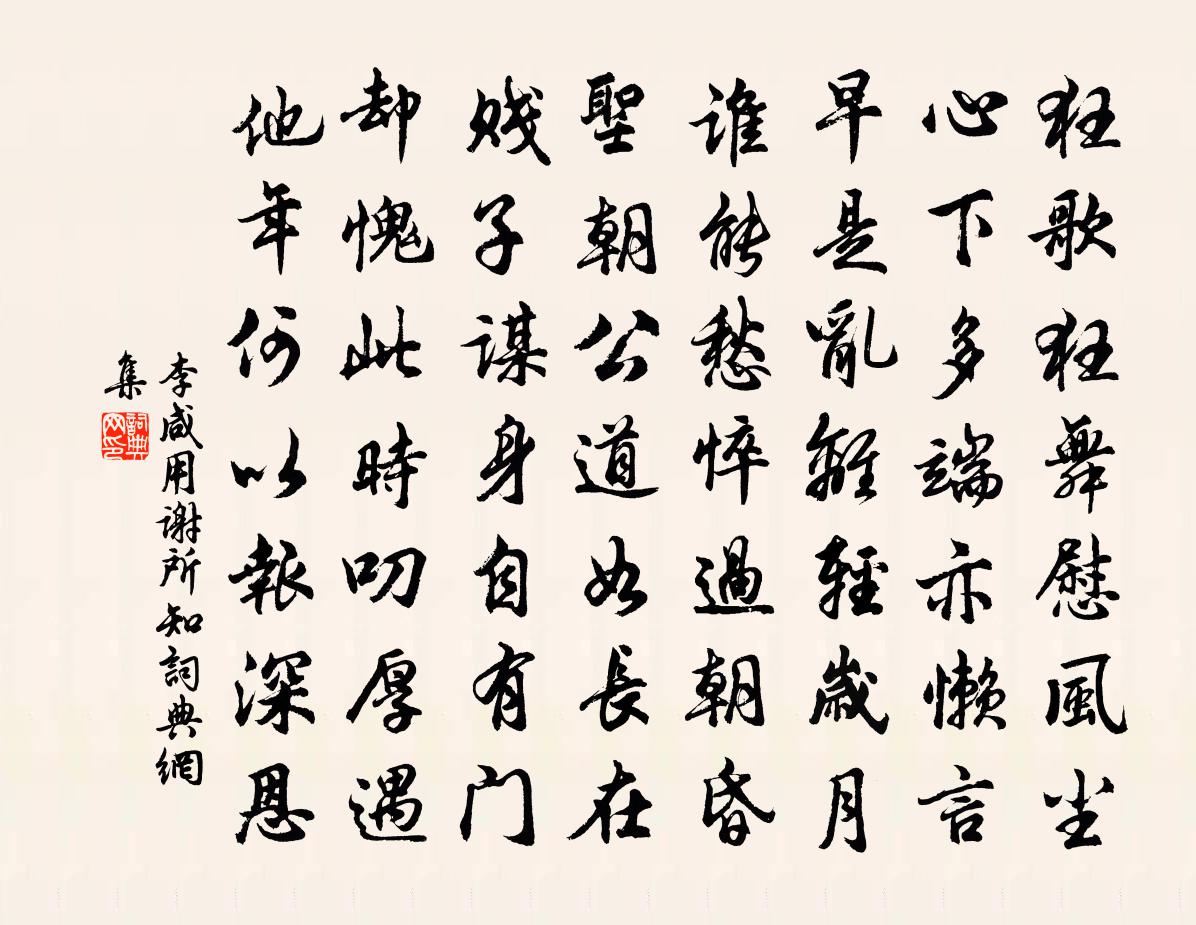 狂歌狂舞慰風尘
心下多端亦懒言
早是亂離輕歲月
谁能愁悴過朝昏
聖朝公道如長在
贱子謀身自有门
却愧此時叨厚遇
他年何以報深恩
李咸用谢所知詞典網
集
詞典
网印